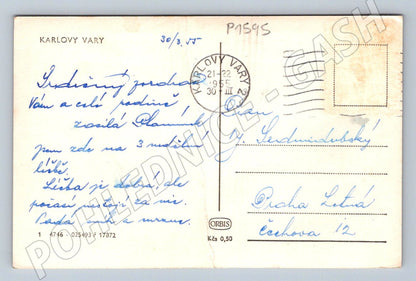 P1595
30/3.55
KARLOVY VARY
KARLOVY VARY 2
21-22
955
30 III
Srdečný pozdrav
Vám a celé rodině
zasílá
jsem zde na 3 nedělní
léčbě.
Léčba je dobrá, ale
počasí nestojí za nic.
Padá sníh a mrzne.
Pan
Praha Letná
Čechova 12
ORBIS
Kčs 0,50
1 4746 - 025493 F 17872
POHLEDNICE - GASH